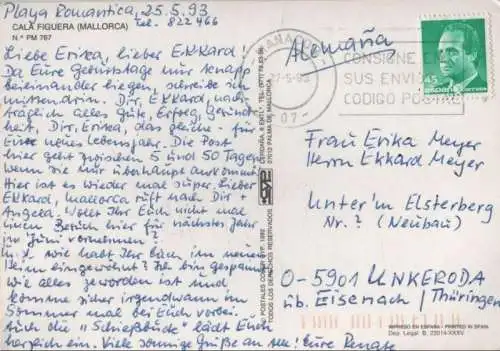 Playa Romantica, 25.5.93
Tel. 822466
CALA FIGUERA (MALLORCA)
N.º PM 767
Liebe Erika, lieber Ekkard!
Da Eure Geburtstage nur knapp
beieinander liegen, schreibe ich
mittendrin. Dir, Ekkard, nach-
träglich alles Gute, Erfolg, Gesund-
heit, Dir, Erika, das gleiche - für
Eure neues Lebensjahr. Die Post
hier geht zwischen 5 und 50 Tagen,
wenn sie nur überhaupt ankommt.
Hier ist es wieder mal super. Lieber
Ekkard, Mallorca ruft nach Dir +
Angela. Wollt Ihr Euch nicht mal
einen Besuch hier für nächstes Jahr
so "Juni" vornehmen?
Und wie habt Ihr Euch im neuen
Heim eingewöhnt? Ich bin gespannt
wie alles geworden ist und
komme sicher irgendwann im
Sommer mal bei Euch vorbei.
Auch die "Schießbude" lädt Euch
herzlich ein. Viele sonnige Grüße an alle! Eure Renate
© POSTALES 1992
TODOS LOS DERECHOS RESERVADOS
07012 PALMA DE MALLORCA
Alemaña
27-5-93
07-
CONSIGNE EN
SUS ENVIOS
CODIGO POSTAL
45
Frau Erika Meyer
Herrn Ekkard Meyer
Unter'm Elsterberg
Nr.? (Neubau)
O-5901 UNKERODA
üb. Eisenach/Thüringen
IMPRESO EN ESPAÑA - PRINTED IN SPAIN
Dep. Legal: B. 22014-XXXV